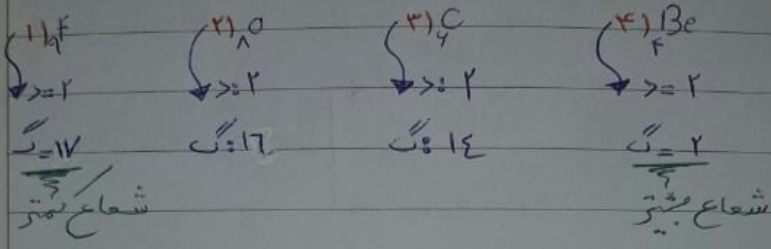 ۱) ₉F ۲) ₈O ۳) ₆C ۴) ₄Be
د=۲ د:۲ د:۲ د=۲
گ=۱۷ گ:۱٦ گ:۱٤ گ=۲
شعاع کمتر شعاع بیشتر